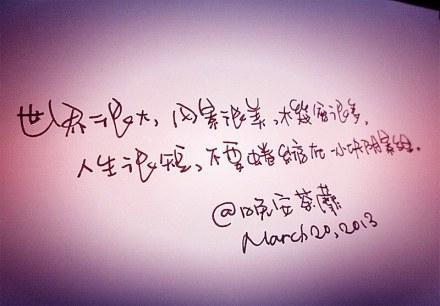 世界很大，风景很美，机会很多，
人生很短，不要蜷缩在一小块阴影里。
@晚安荼蘼
March 20, 2013